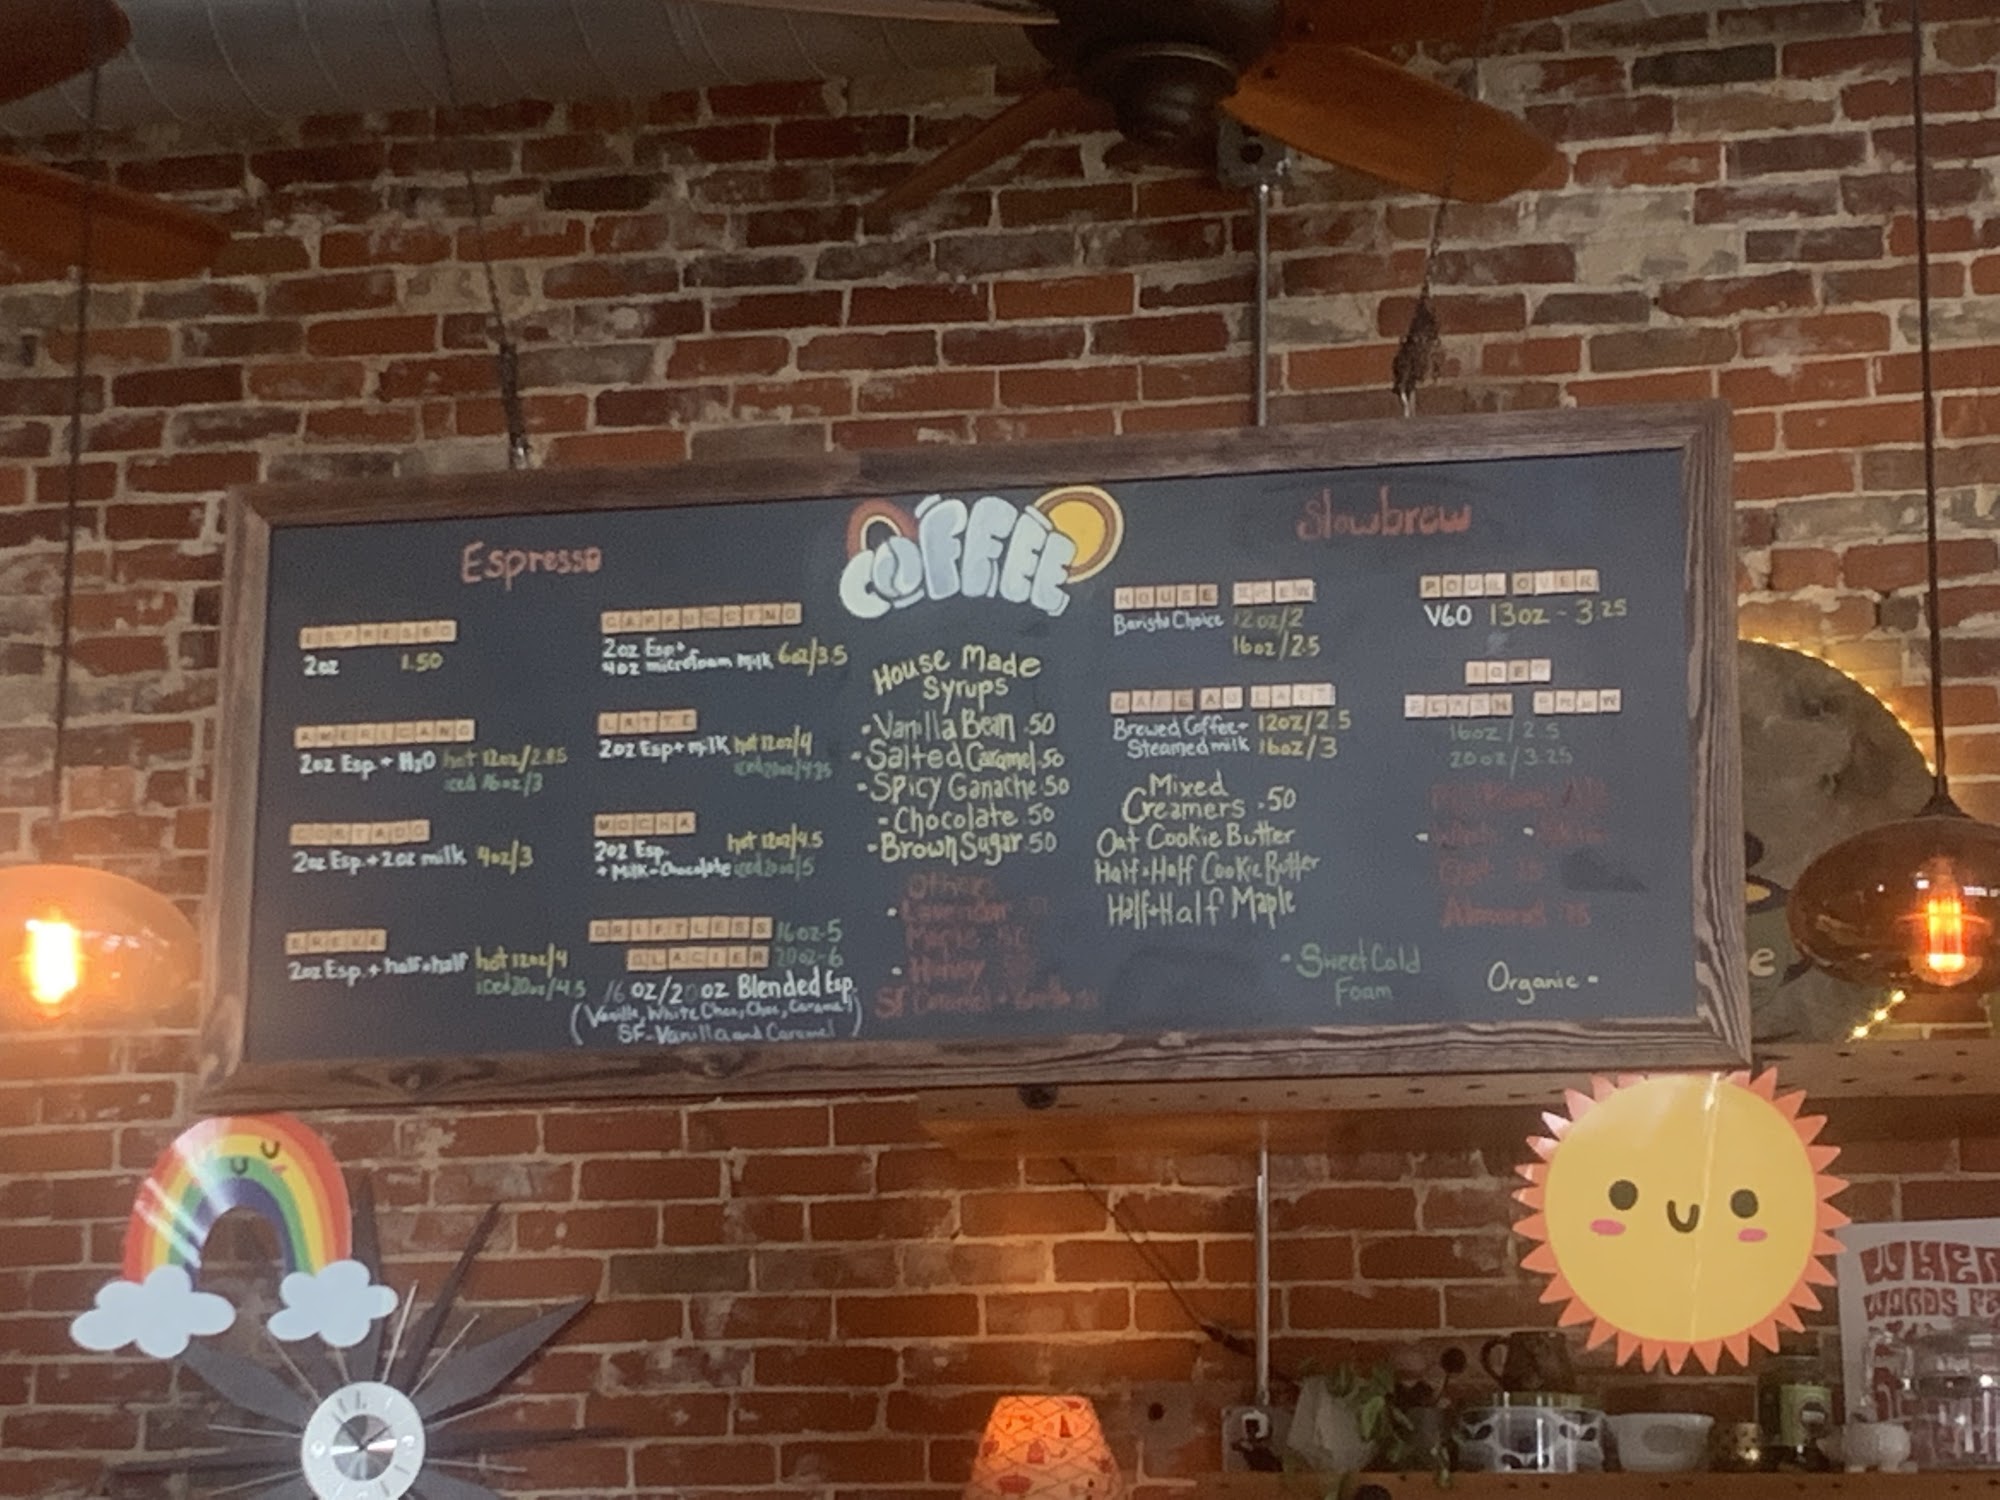 COFFEE
Espresso
ESPRESSO
2oz 1.50
AMERICANO
2oz Esp. + H2O hot 12oz/2.85
iced 16oz/3
CORTADO
2oz Esp. + 2oz milk 4oz/3
BREVE
2oz Esp. + half+half hot 12oz/4
iced 20oz/4.5
CAPPUCCINO
2oz Esp+
4oz microfoam milk 6oz/3.5
LATTE
2oz Esp+milk hot 12oz/4
iced 20oz/4.25
MOCHA
2oz Esp. hot 12oz/4.5
+ Milk-Chocolate iced 20oz/5
DRIFTLESS 16oz-5
GLACIER 20oz-6
16 oz/20 oz Blended Esp.
(Vanilla, White Choc, Choc, Caramel)
SF-Vanilla and Caramel
House Made
Syrups
-Vanilla Bean .50
-Salted Caramel .50
-Spicy Ganache .50
-Chocolate .50
-Brown Sugar .50
Other
Lavender
Maple
Honey
SF Caramel
Slowbrew
HOUSE BREW
Barista Choice 12oz/2
16oz/2.5
CAFE AU LAIT
Brewed Coffee+ 12oz/2.5
Steamed milk 16oz/3
Mixed
Creamers -.50
Oat Cookie Butter
Half+Half Cookie Butter
Half+Half Maple
-Sweet Cold
Foam
POUR OVER
V60 13oz - 3.25
ICED
FLASH BREW
16oz/2.5
20oz/3.25
Oat
Almond .75
Organic -
WHEN
WORDS